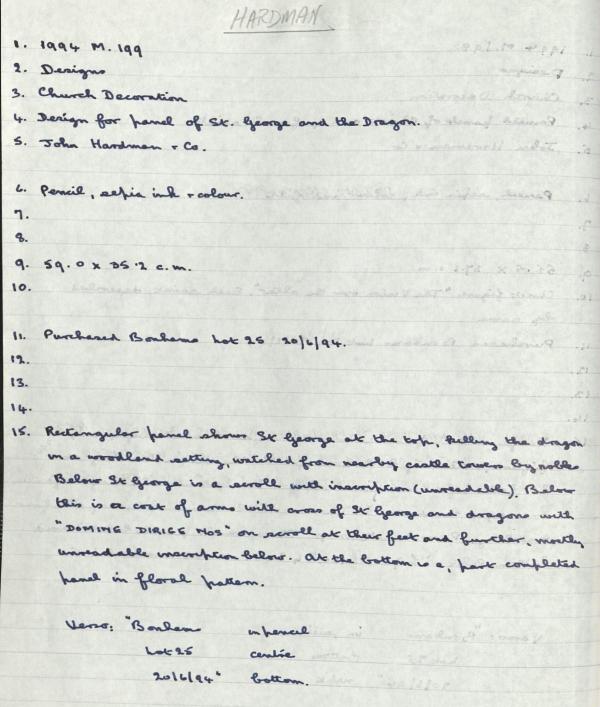 HARDMAN
1. 1994 M. 199
2. Designs
3. Church Decoration
4. Design for panel of St. George and the Dragon.
5. John Hardman + Co.
6. Pencil, sepia ink + colour.
7.
8.
9. 59.0 x 35.2 c.m.
10.
11. Purchased Bonhams Lot 25 20/6/94.
12.
13.
14.
15. Rectangular panel shows St George at the top, killing the dragon
in a woodland setting, watched from nearby castle towers by nobles
Below St George is a scroll with inscription (unreadable). Below
this is a coat of arms with cross of St George and dragons with
"DOMINE DIRIGE NOS" on scroll at their feet and further, mostly
unreadable inscription below. At the bottom is a, part completed
panel in floral pattern.
Verso: "Bonhams in pencil
Lot 25 centre
20/6/94" bottom.